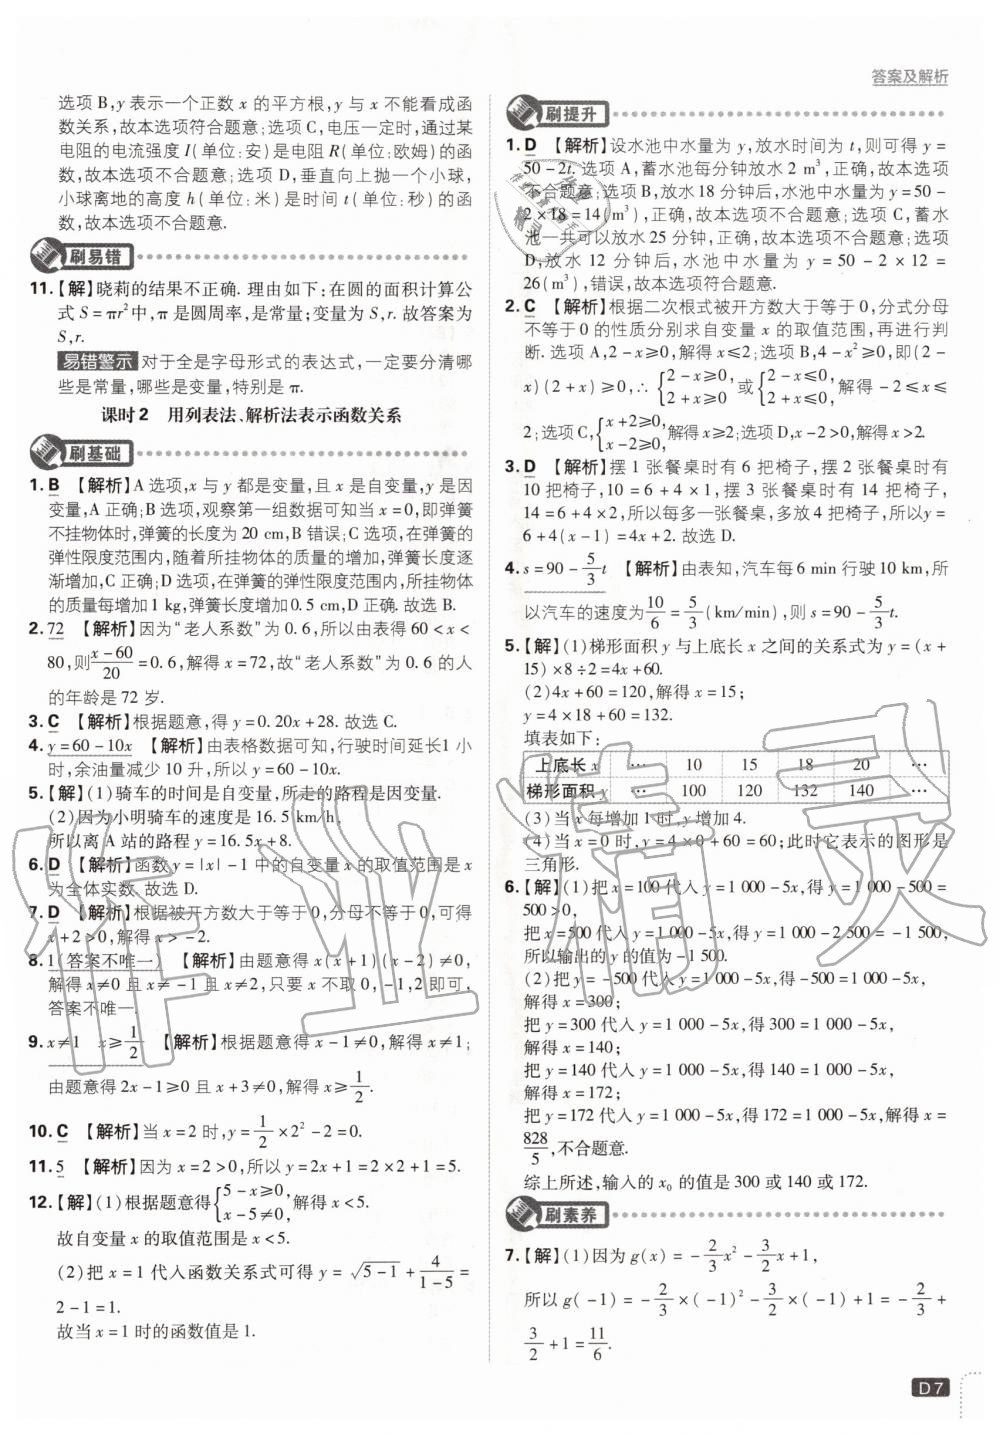 答案及解析
选项 B,y 表示一个正数 x 的平方根,y 与 x 不能看成函
数关系,故本选项符合题意;选项 C,电压一定时,通过某
电阻的电流强度 I(单位:安)是电阻 R(单位:欧姆)的函
数,故本选项不合题意;选项 D,垂直向上抛一个小球,
小球离地的高度 h(单位:米)是时间 t(单位:秒)的函
数,故本选项不合题意.
刷易错
11.【解】晓莉的结果不正确. 理由如下:在圆的面积计算公
式 S=πr²中,π 是圆周率,是常量;变量为 S,r. 故答案为
S,r.
易错警示 对于全是字母形式的表达式,一定要分清哪
些是常量,哪些是变量,特别是 π.
课时2 用列表法、解析法表示函数关系
刷基础
1. B 【解析】A 选项,x 与 y 都是变量,且 x 是自变量,y 是因
变量,A 正确;B 选项,观察第一组数据可知当 x=0,即弹簧
不挂物体时,弹簧的长度为 20 cm,B 错误;C 选项,在弹簧的
弹性限度范围内,随着所挂物体的质量的增加,弹簧长度逐
渐增加,C 正确;D 选项,在弹簧的弹性限度范围内,所挂物体
的质量每增加 1 kg,弹簧长度增加0.5 cm,D 正确. 故选 B.
2. 72 【解析】因为“老人系数”为 0.6,所以由表得 60<x<
80,则(x-60)/20=0.6,解得 x=72,故“老人系数”为 0.6 的人
的年龄是 72 岁.
3. C 【解析】根据题意,得 y=0.20x+28. 故选 C.
4. y=60-10x 【解析】由表格数据可知,行驶时间延长1 小
时,余油量减少 10 升,所以 y=60-10x.
5.【解】(1)骑车的时间是自变量,所走的路程是因变量.
(2)因为小明骑车的速度是 16.5 km/h,
所以离 A 站的路程 y=16.5x+8.
6. D 【解析】函数 y=|x|-1 中的自变量 x 的取值范围是 x
为全体实数. 故选 D.
7. D 【解析】根据被开方数大于等于 0,分母不等于 0,可得
x+2>0,解得 x>-2.
8. 1(答案不唯一) 【解析】由题意得 x(x+1)(x-2)≠0,
解得 x≠0 且 x≠-1 且 x≠2,只要 x 不取 0,-1,2 即可,
答案不唯一.
9. x≠1 x≥1/2 【解析】根据题意得 x-1≠0,解得 x≠1;
由题意得 2x-1≥0 且 x+3≠0,解得 x≥1/2.
10. C 【解析】当 x=2 时,y=1/2×2²-2=0.
11. 5 【解析】因为 x=2>0,所以 y=2x+1=2×2+1=5.
12.【解】(1)根据题意得{5-x≥0, x-5≠0,解得 x<5.
故自变量 x 的取值范围是 x<5.
(2)把 x=1 代入函数关系式可得 y=√(5-1)+4/(1-5)=
2-1=1.
故当 x=1 时的函数值是 1.
刷提升
1. D 【解析】设水池中水量为 y,放水时间为 t,则可得 y=
50-2t. 选项 A,蓄水池每分钟放水 2 m³,正确,故本选项
不合题意;选项 B,放水 18 分钟后,水池中水量为 y=50-
2×18=14(m³),正确,故本选项不合题意;选项 C,蓄水
池一共可以放水 25 分钟,正确,故本选项不合题意;选项
D,放水 12 分钟后,水池中水量为 y=50-2×12=
26(m³),错误,故本选项符合题意.
2. C 【解析】根据二次根式被开方数大于等于 0,分式分母
不等于 0 的性质分别求自变量 x 的取值范围,再进行判
断. 选项 A,2-x≥0,解得 x≤2;选项 B,4-x²≥0,即(2-
x)(2+x)≥0,∴{2-x≥0, 2+x≥0或{2-x≤0, 2+x≤0,解得-2≤x≤
2;选项 C,{x+2≥0, x-2≥0,解得 x≥2;选项 D,x-2>0,解得 x>2.
3. D 【解析】摆 1 张餐桌时有 6 把椅子,摆 2 张餐桌时有
10 把椅子,10=6+4×1,摆 3 张餐桌时有 14 把椅子,
14=6+4×2,所以每多一张餐桌,多放 4 把椅子,所以 y=
6+4(x-1)=4x+2. 故选 D.
4. s=90-5/3t 【解析】由表知,汽车每 6 min 行驶 10 km,所
以汽车的速度为10/6=5/3(km/min),则 s=90-5/3t.
5.【解】(1)梯形面积 y 与上底长 x 之间的关系式为 y=(x+
15)×8÷2=4x+60.
(2)4x+60=120,解得 x=15;
y=4×18+60=132.
填表如下:
上底长 x … 10 15 18 20 …
梯形面积 y … 100 120 132 140 …
(3)当 x 每增加 1 时,y 增加 4.
(4)当 x=0 时,y=4×0+60=60;此时它表示的图形是
三角形.
6.【解】(1)把 x=100 代入 y=1 000-5x,得 y=1 000-500=
500>0,
把 x=500 代入 y=1 000-5x,得 y=1 000-2 500=-1 500,
所以输出的 y 的值为-1 500.
(2)把 y=-500 代入 y=1 000-5x,得-500=1 000-5x,
解得 x=300;
把 y=300 代入 y=1 000-5x,得 300=1 000-5x,
解得 x=140;
把 y=140 代入 y=1 000-5x,得 140=1 000-5x,
解得 x=172;
把 y=172 代入 y=1 000-5x,得 172=1 000-5x,解得 x=
828/5,不合题意.
综上所述,输入的 x₀ 的值是 300 或 140 或 172.
刷素养
7.【解】(1)因为 g(x)=-2/3x²-3/2x+1,
所以 g(-1)=-2/3×(-1)²-3/2×(-1)+1=-2/3+
3/2+1=11/6.
D7
作业精灵